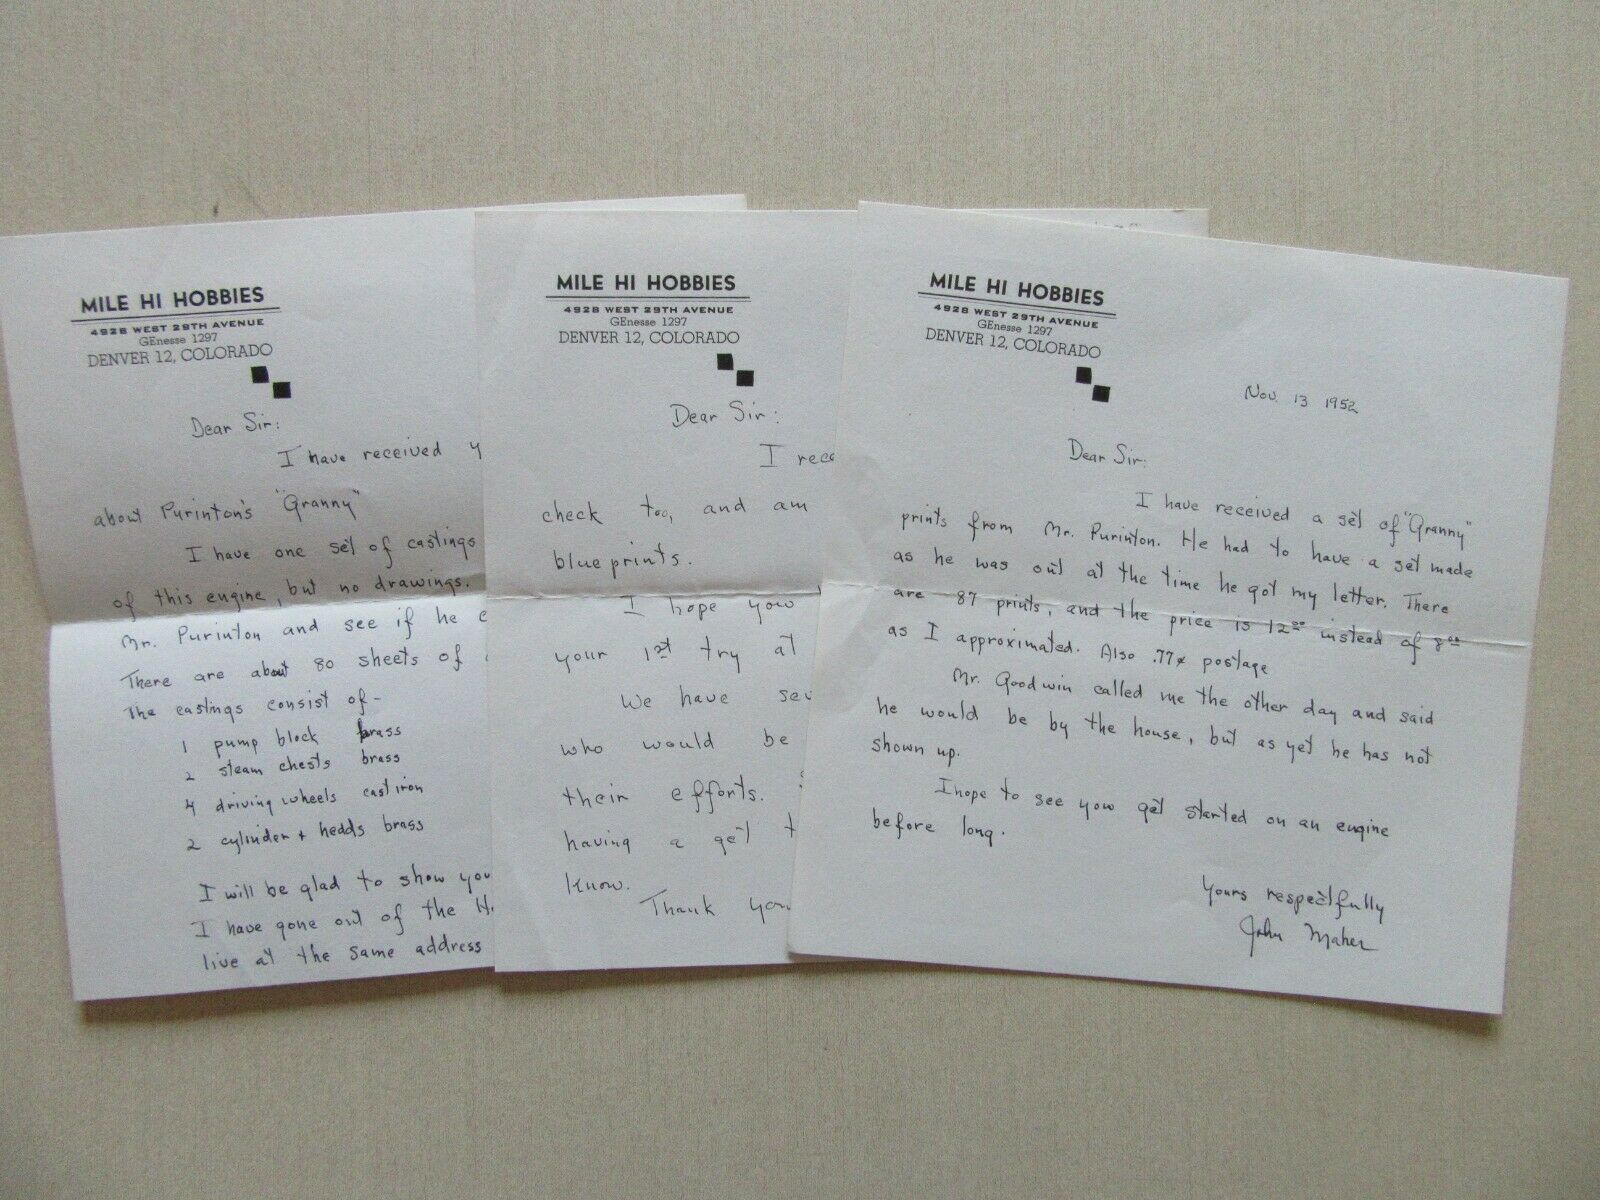 MILE HI HOBBIES
4928 WEST 29TH AVENUE
GEnesse 1297
DENVER 12, COLORADO
Dear Sir:
I have received y
about Purinton's "Granny"
I have one set of castings
of this engine, but no drawings.
Mr. Purinton and see if he c
There are about 80 sheets of
The castings consist of-
1 pump block brass
2 steam chests brass
4 driving wheels cast iron
2 cylinder + hedds brass
I will be glad to show you
I have gone out of the H
live at the same address
MILE HI HOBBIES
4928 WEST 29TH AVENUE
GEnesse 1297
DENVER 12, COLORADO
Dear Sir:
I rece
check too, and am
blueprints.
I hope you
your 1st try at
We have sev
who would be
their efforts.
having a get t
know.
Thank you
MILE HI HOBBIES
4928 WEST 29TH AVENUE
GEnesse 1297
DENVER 12, COLORADO
Nov. 13 1952
Dear Sir:
I have received a set of "Granny"
prints from Mr. Purinton. He had to have a set made
as he was out at the time he got my letter. There
are 87 prints, and the price is 12.00 instead of 8.00
as I approximated. Also .77¢ postage
Mr. Goodwin called me the other day and said
he would be by the house, but as yet he has not
shown up.
I hope to see you get started on an engine
before long.
Yours respectfully
John Maher